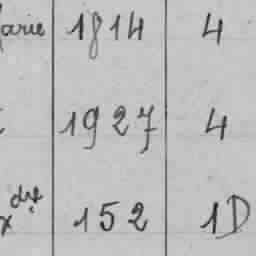 arie 1814 4
1927 4
dre
x 152 1D